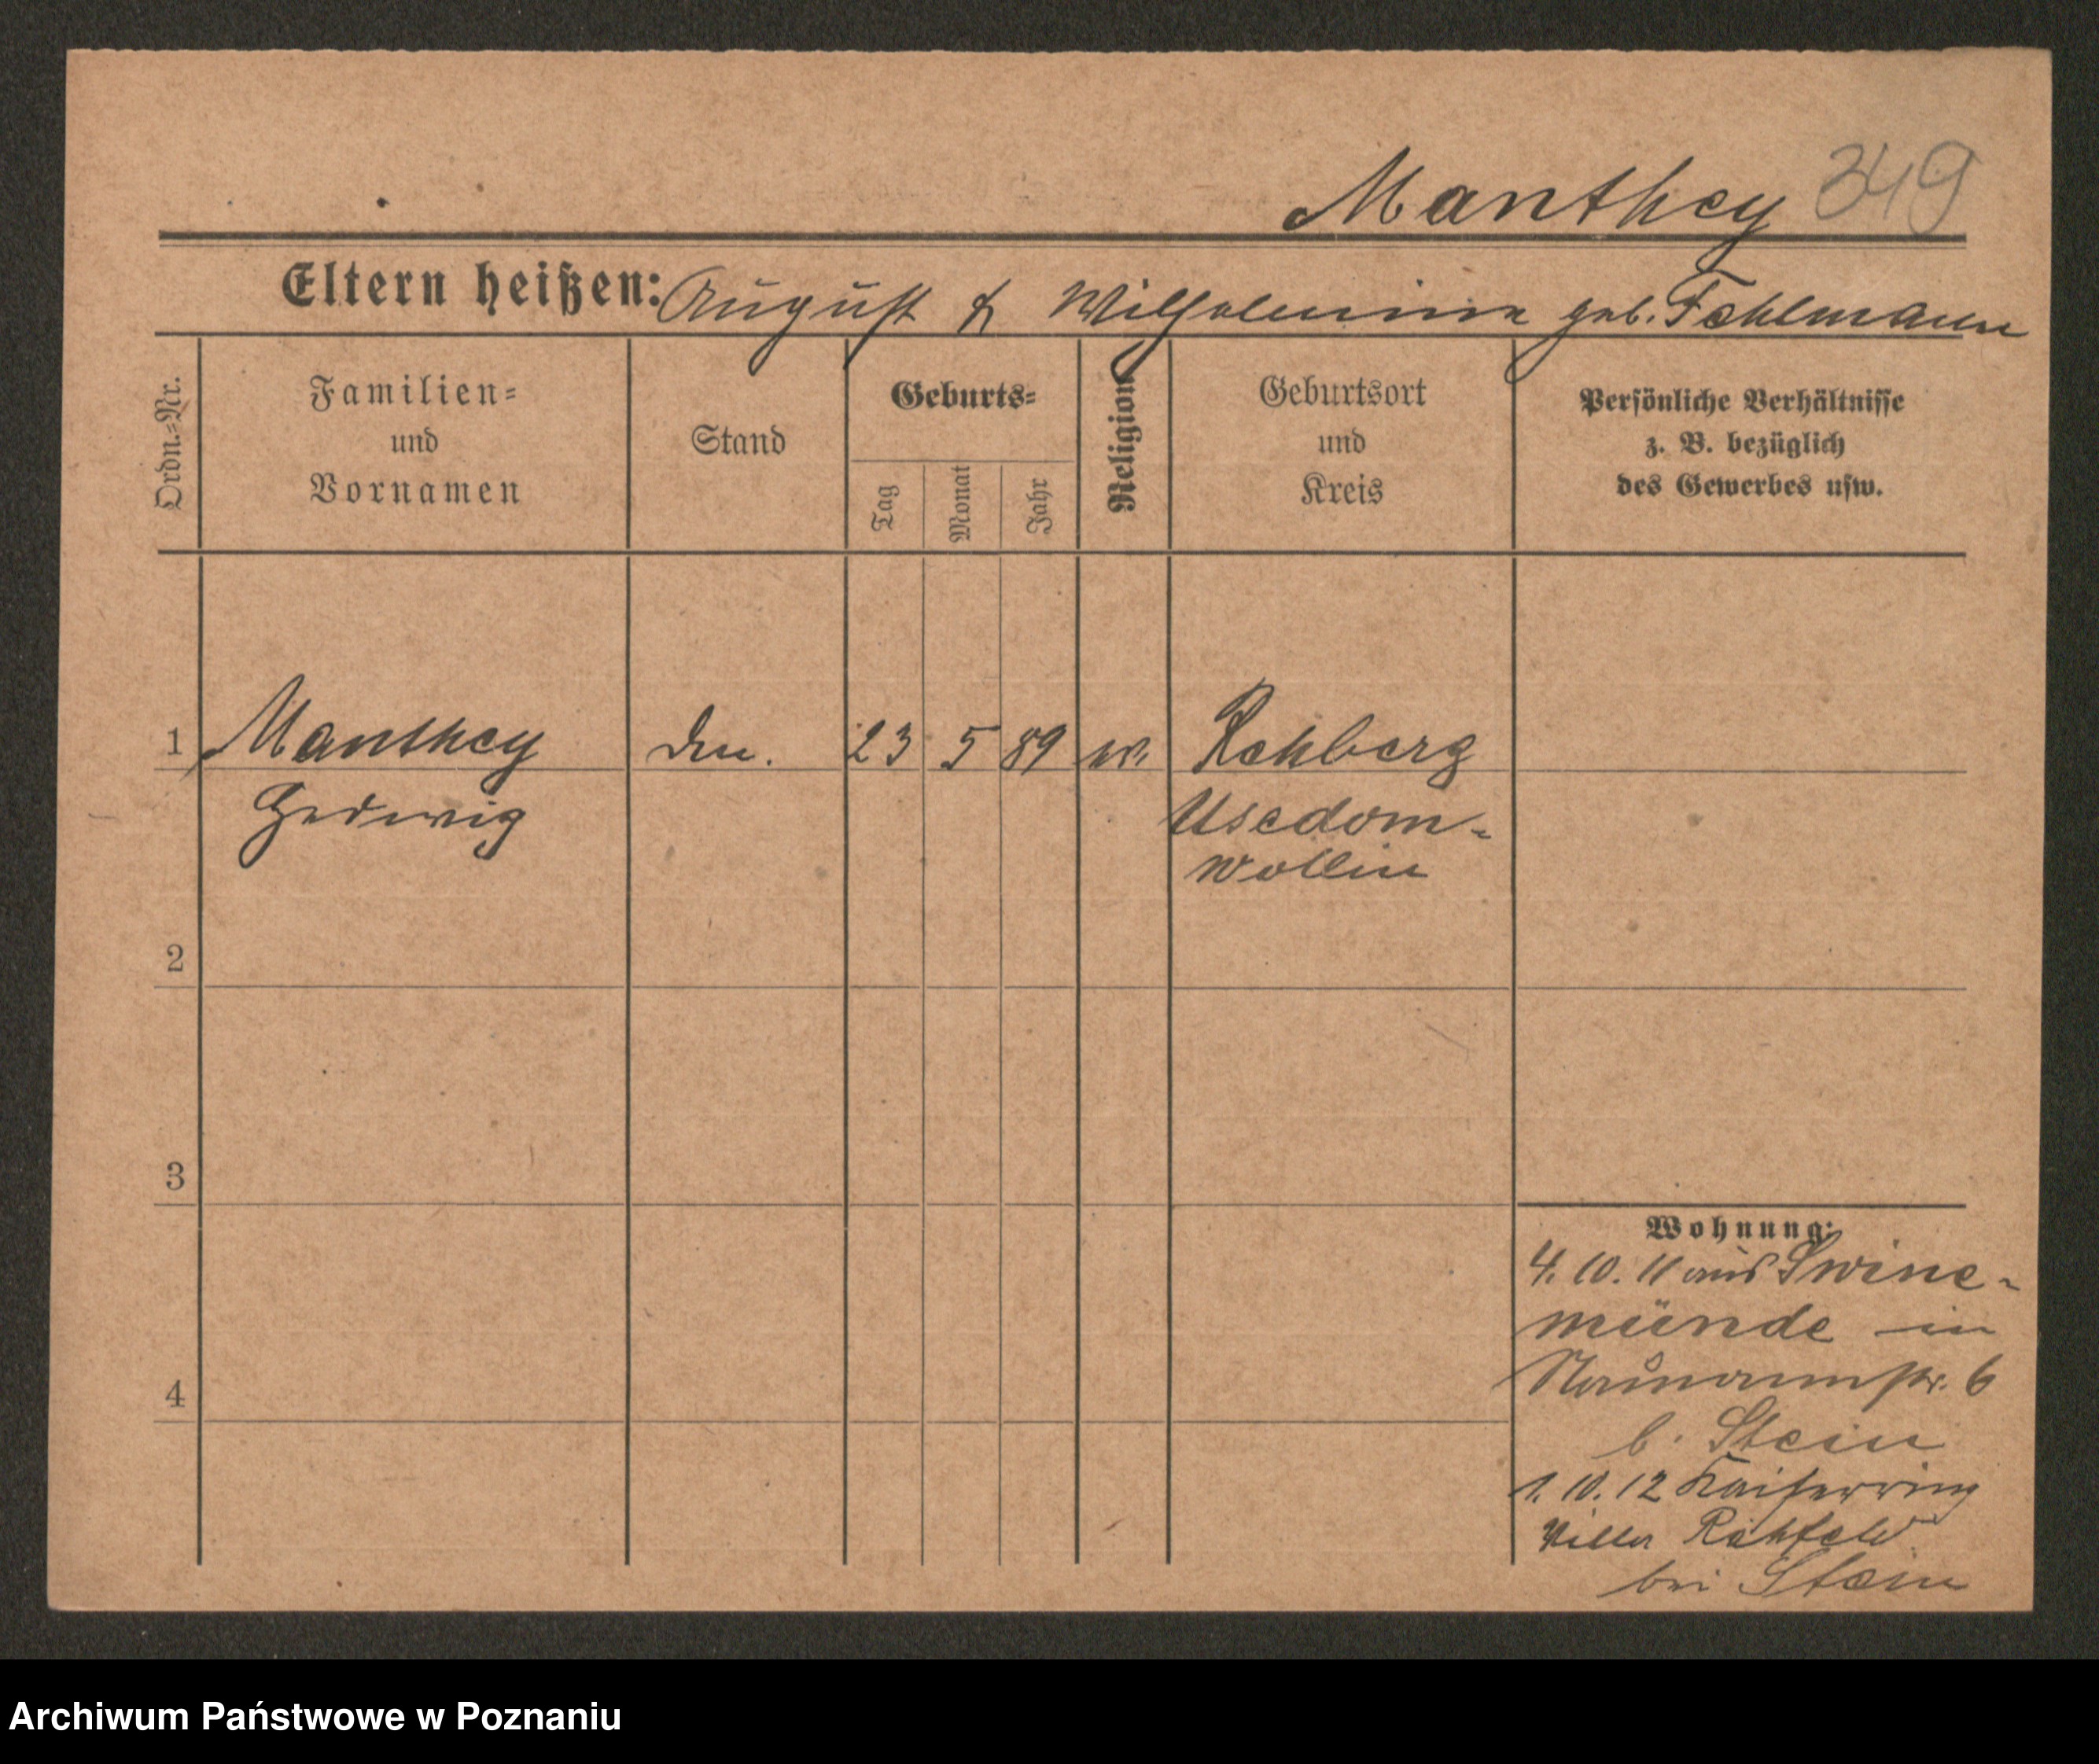 Manthey 349
Eltern heißen: August & Wilhelmine geb. Fehlmann
Ordn.-Nr.
Familien-
und
Vornamen
Stand
Geburts-
Tag
Monat
Jahr
Religion
Geburtsort
und
Kreis
Persönliche Verhältnisse
z. B. bezüglich
des Gewerbes usw.
1 Manthey 23 5 89 Rehberg
Hedwig Usedom-
Wollin
2
3
4
Wohnung:
4. 10. 11 aus Swine-
münde in
Naumannstr. 6
b. Stein
1. 10. 12 Kaiserring
Villa Rehfeld
bei Stein
Archiwum Państwowe w Poznaniu